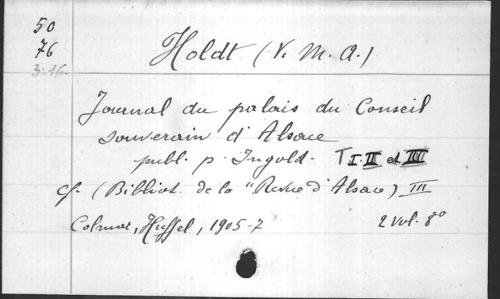 50
76
3:16.
Holdt (V. M. A.)
Journal du palais du Conseil
souverain d'Alsace
publ. p. Ingold. T I. II et III
cf. (Biblioth. de la "Revue d'Alsace) III
Colmar, Hüffel, 1905-7 2 vol. 8°